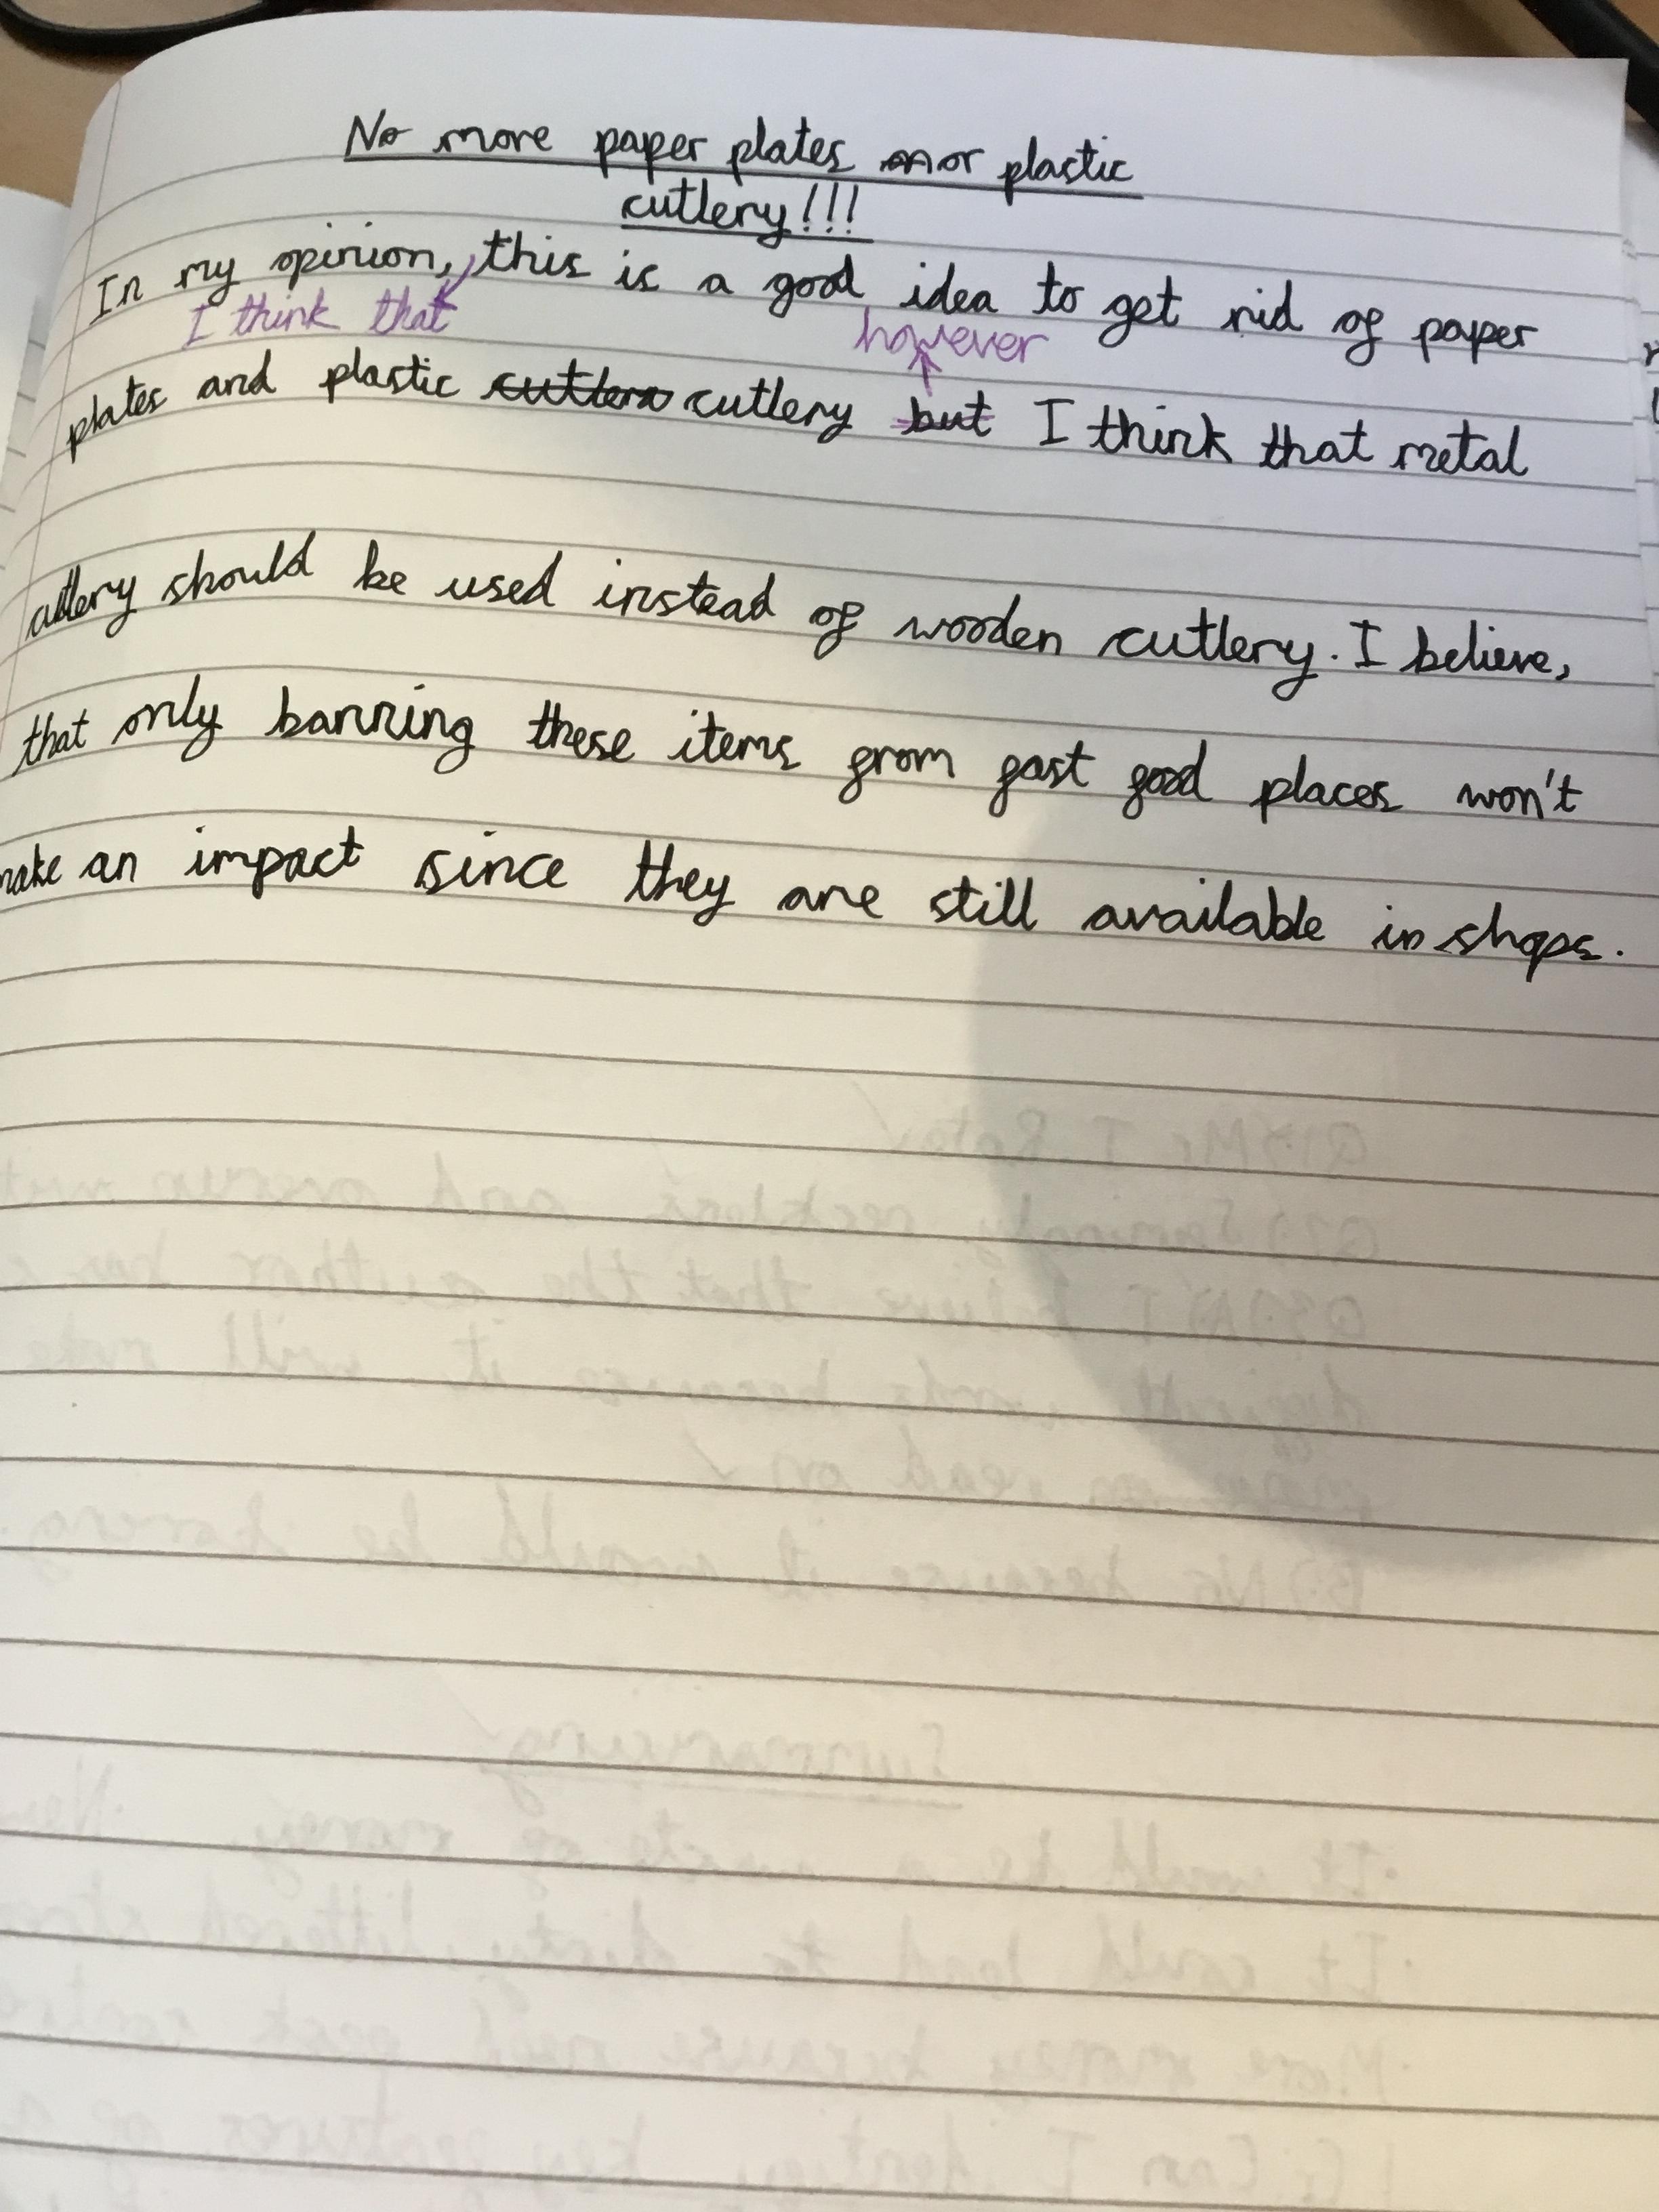 No more paper plates nor plastic
cutlery!!!
In my opinion, this is a good idea to get rid of paper
I think that
however
plates and plastic cutlera cutlery but I think that metal
cutlery should be used instead of wooden cutlery. I believe,
that only banning these items from fast food places won't
make an impact since they are still available in shops.